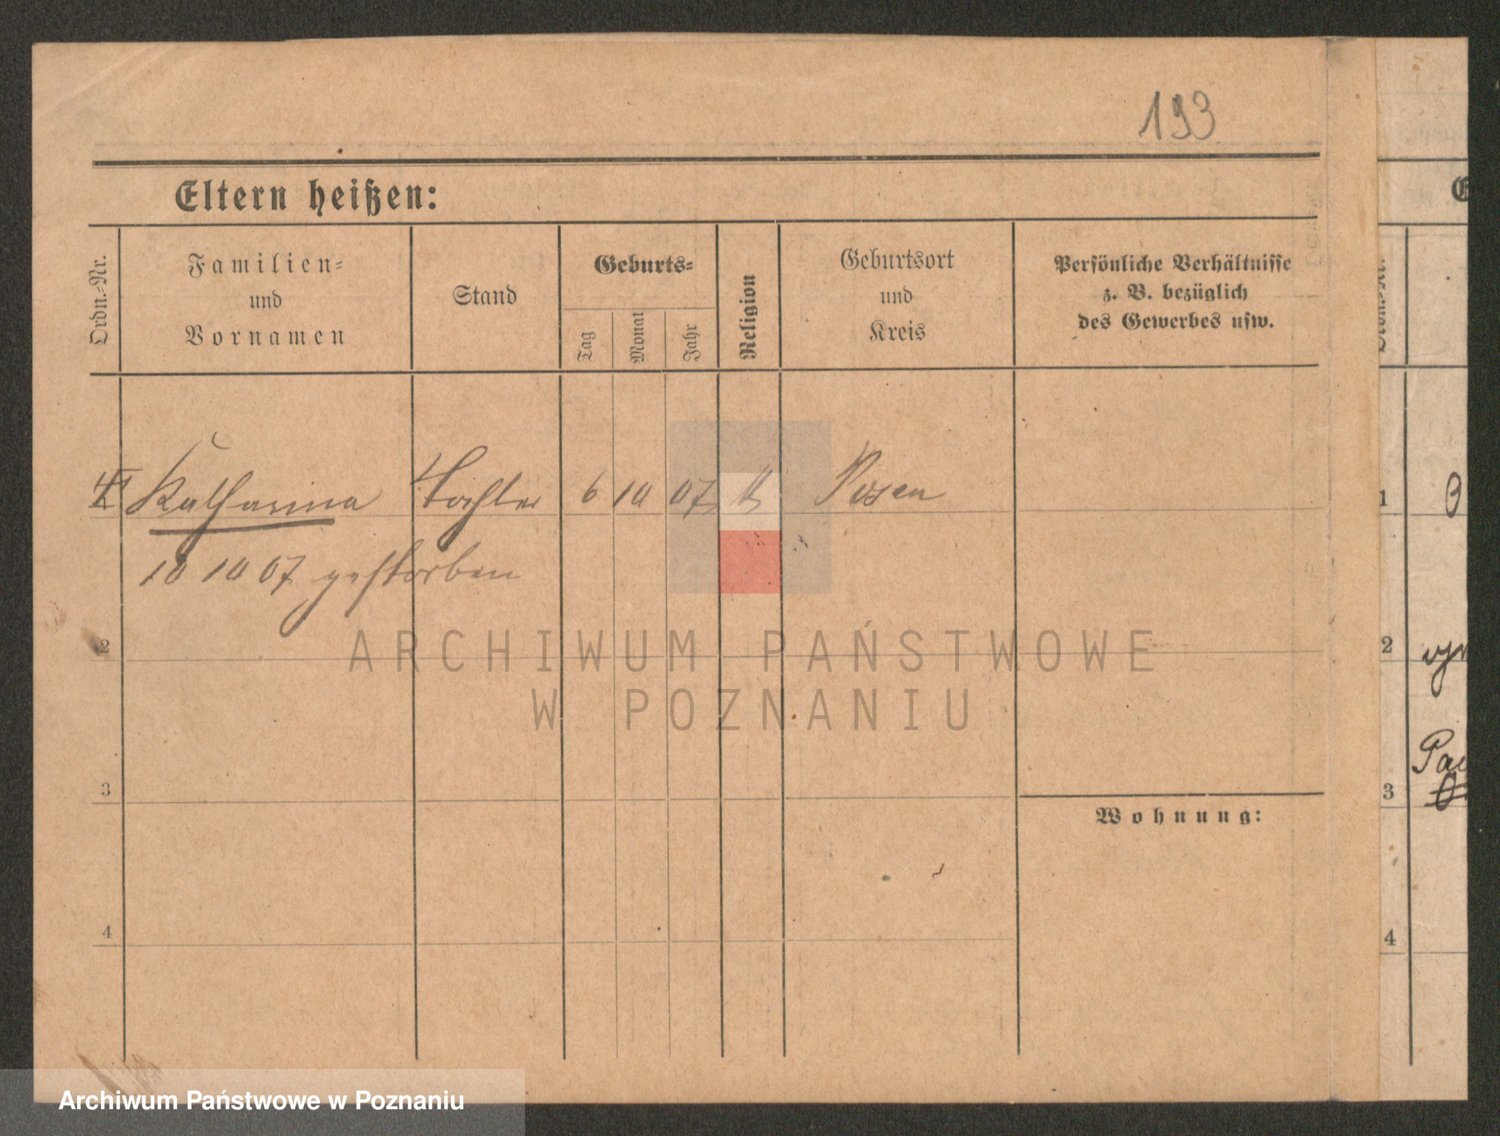 193
Eltern heißen:
Ordn.-Nr.
Familien-
und
Vornamen
Stand
Geburts-
Tag
Monat
Jahr
Religion
Geburtsort
und
Kreis
Persönliche Verhältnisse
z. B. bezüglich
des Gewerbes usw.
Katharina Tochter 6 10 07 k Posen
10 10 07 gestorben
2
3
4
Wohnung:
1
2
3
4
ARCHIWUM PAŃSTWOWE
W POZNANIU
Archiwum Państwowe w Poznaniu